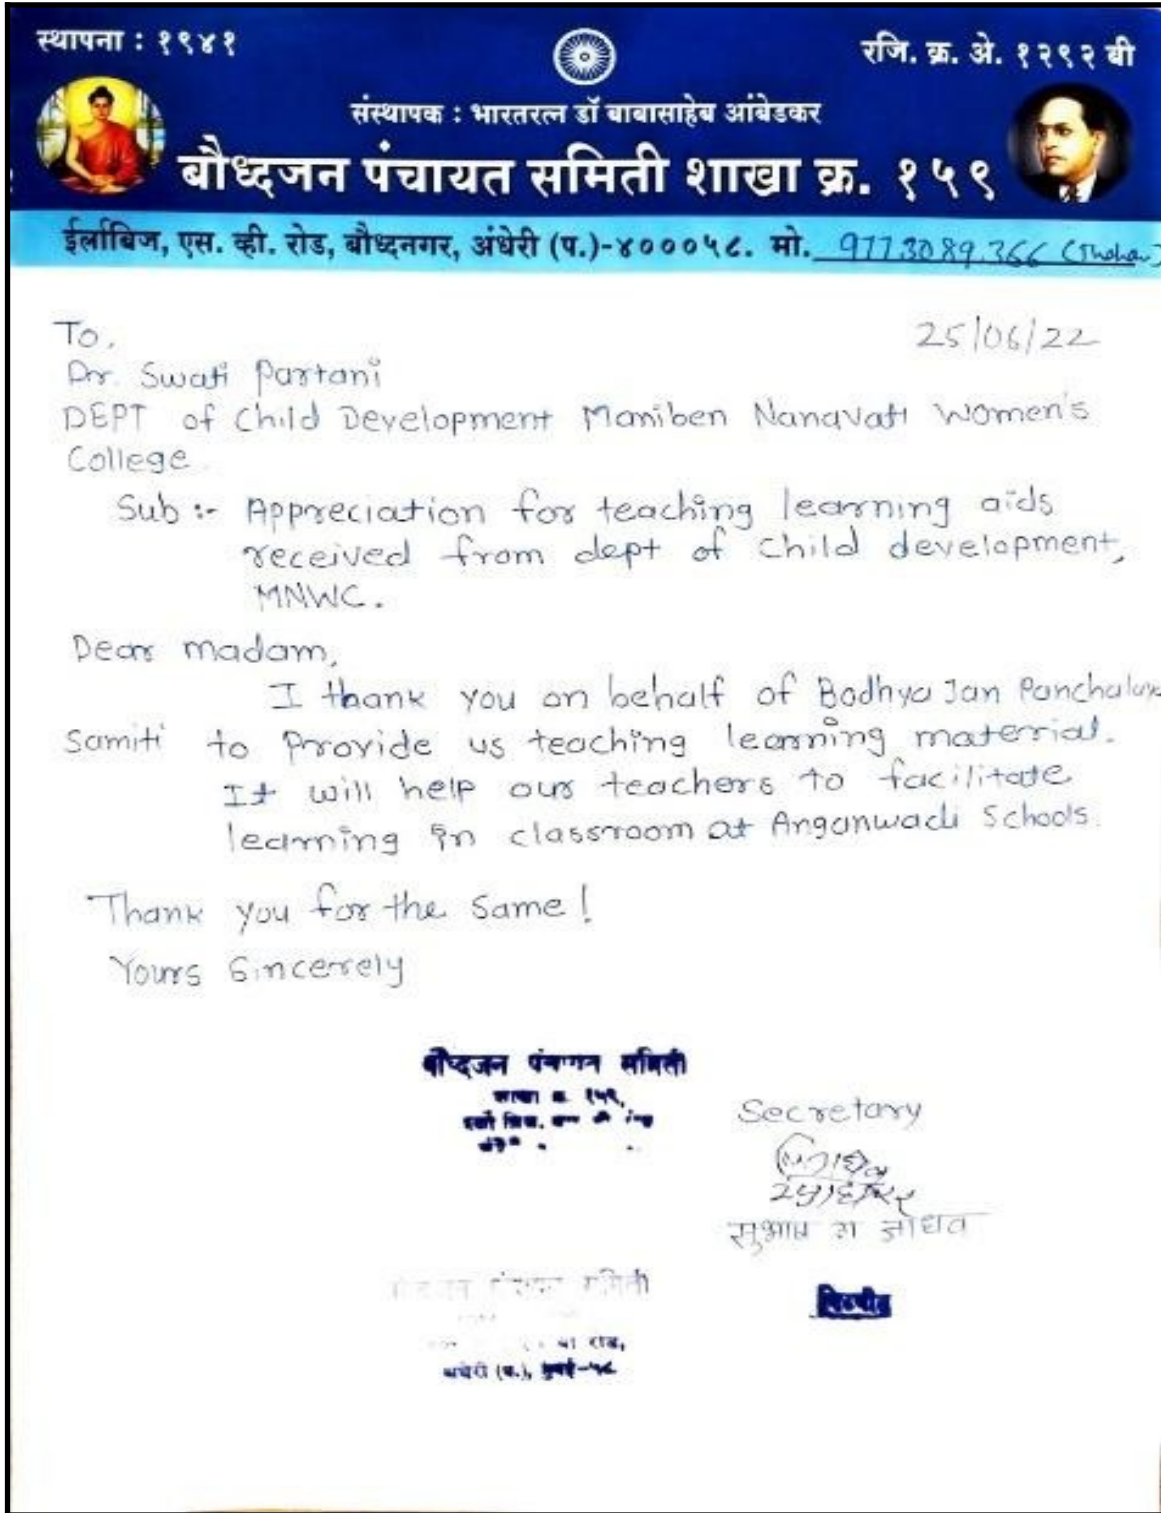 स्थापना : १९४१
रजि. क्र. अे. १२९२ बी
संस्थापक : भारतरत्न डॉ बाबासाहेब आंबेडकर
बौध्दजन पंचायत समिती शाखा क्र. १५९
ईर्लाबिज, एस. व्ही. रोड, बौध्दनगर, अंधेरी (प.)-४०००५८. मो. 9773089366
25/06/22
To,
Dr. Swati Partani
DEPT of Child Development Maniben Nanavati Women's
College
Sub :- Appreciation for teaching learning aids
received from dept of child development,
MNWC.
Dear madam,
I thank you on behalf of Bodhya Jan
Samiti to Provide us teaching learning material.
It will help our teachers to facilitate
learning in classroom at Anganwadi Schools.
Thank you for the same!
Yours Sincerely
बौध्दजन पंचायत समिती
शाखा क्र. १५९,
Secretary
पंचायत समिती
रोड,
अंधेरी (प.), मुंबई-५८